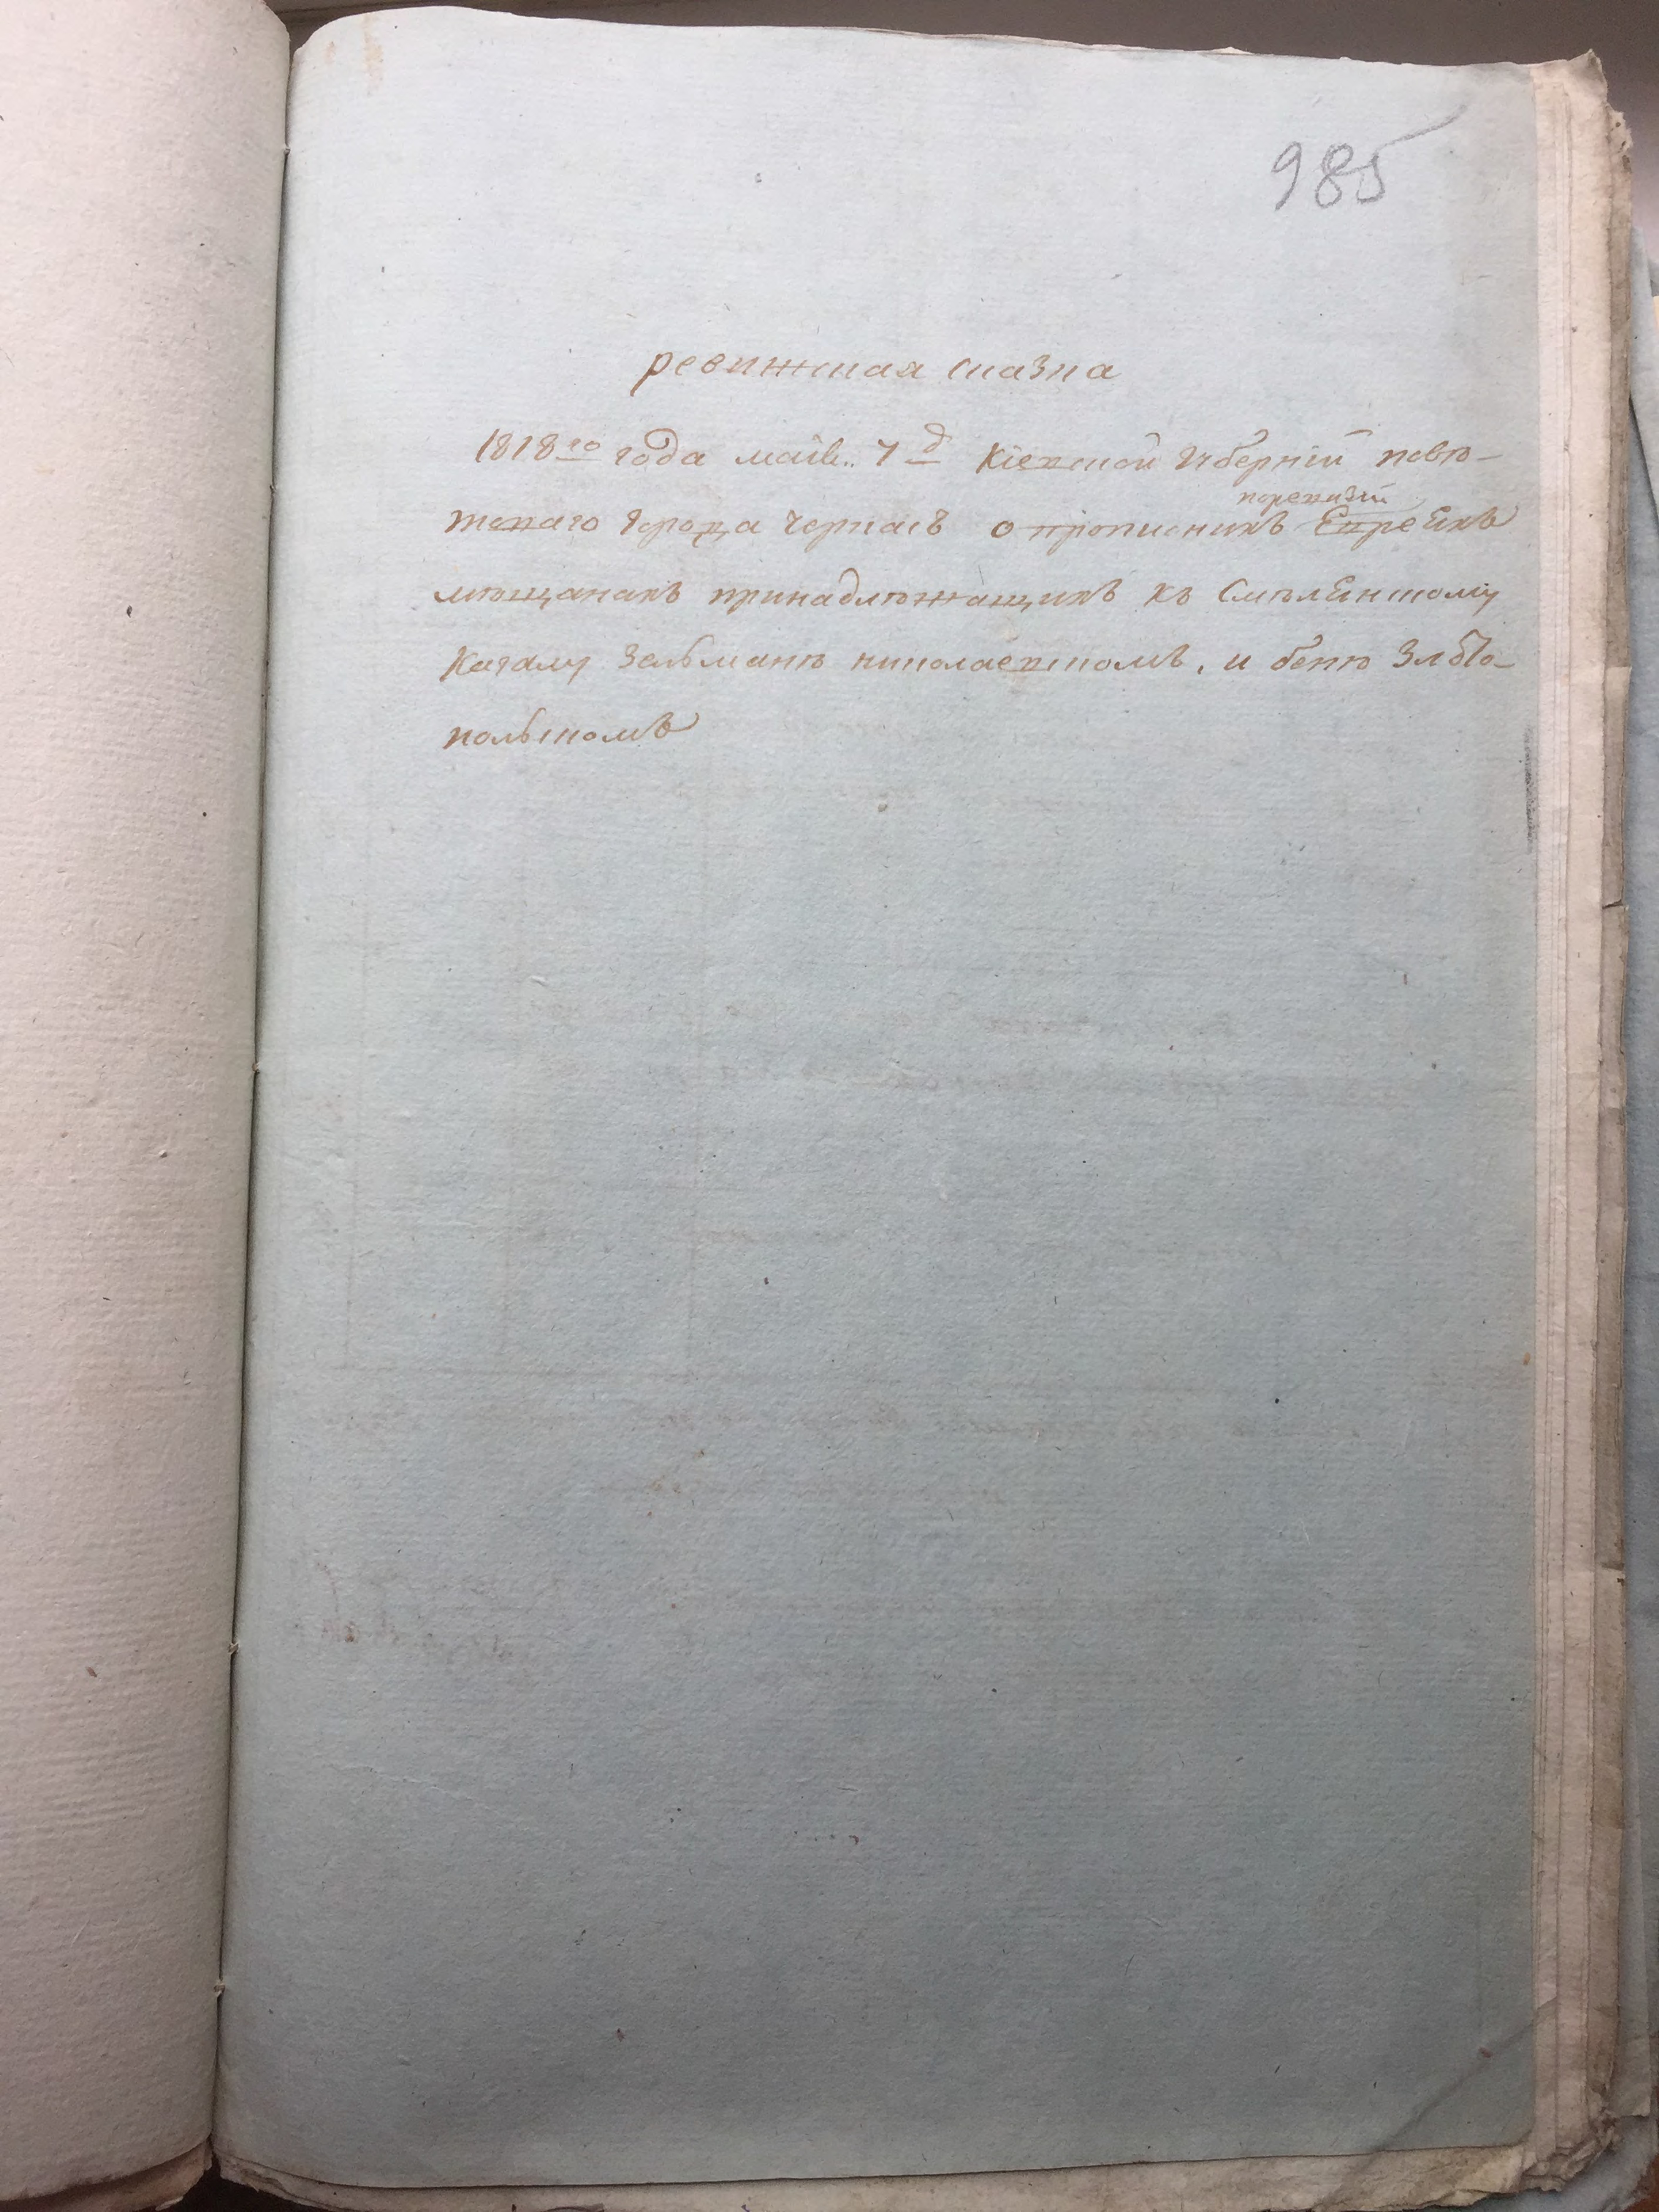 985
ревижская сказка
1818го года маія 7 д Кіевской Губерніи повѣ-
товаго города Черкасъ о прописныхъ Евреяхъ
по ревизіи
мѣщанахъ принадлѣжащихъ къ Смѣлянскому
Кагалу Зельманѣ николаевскомъ, и беркѣ Злото-
польскомъ